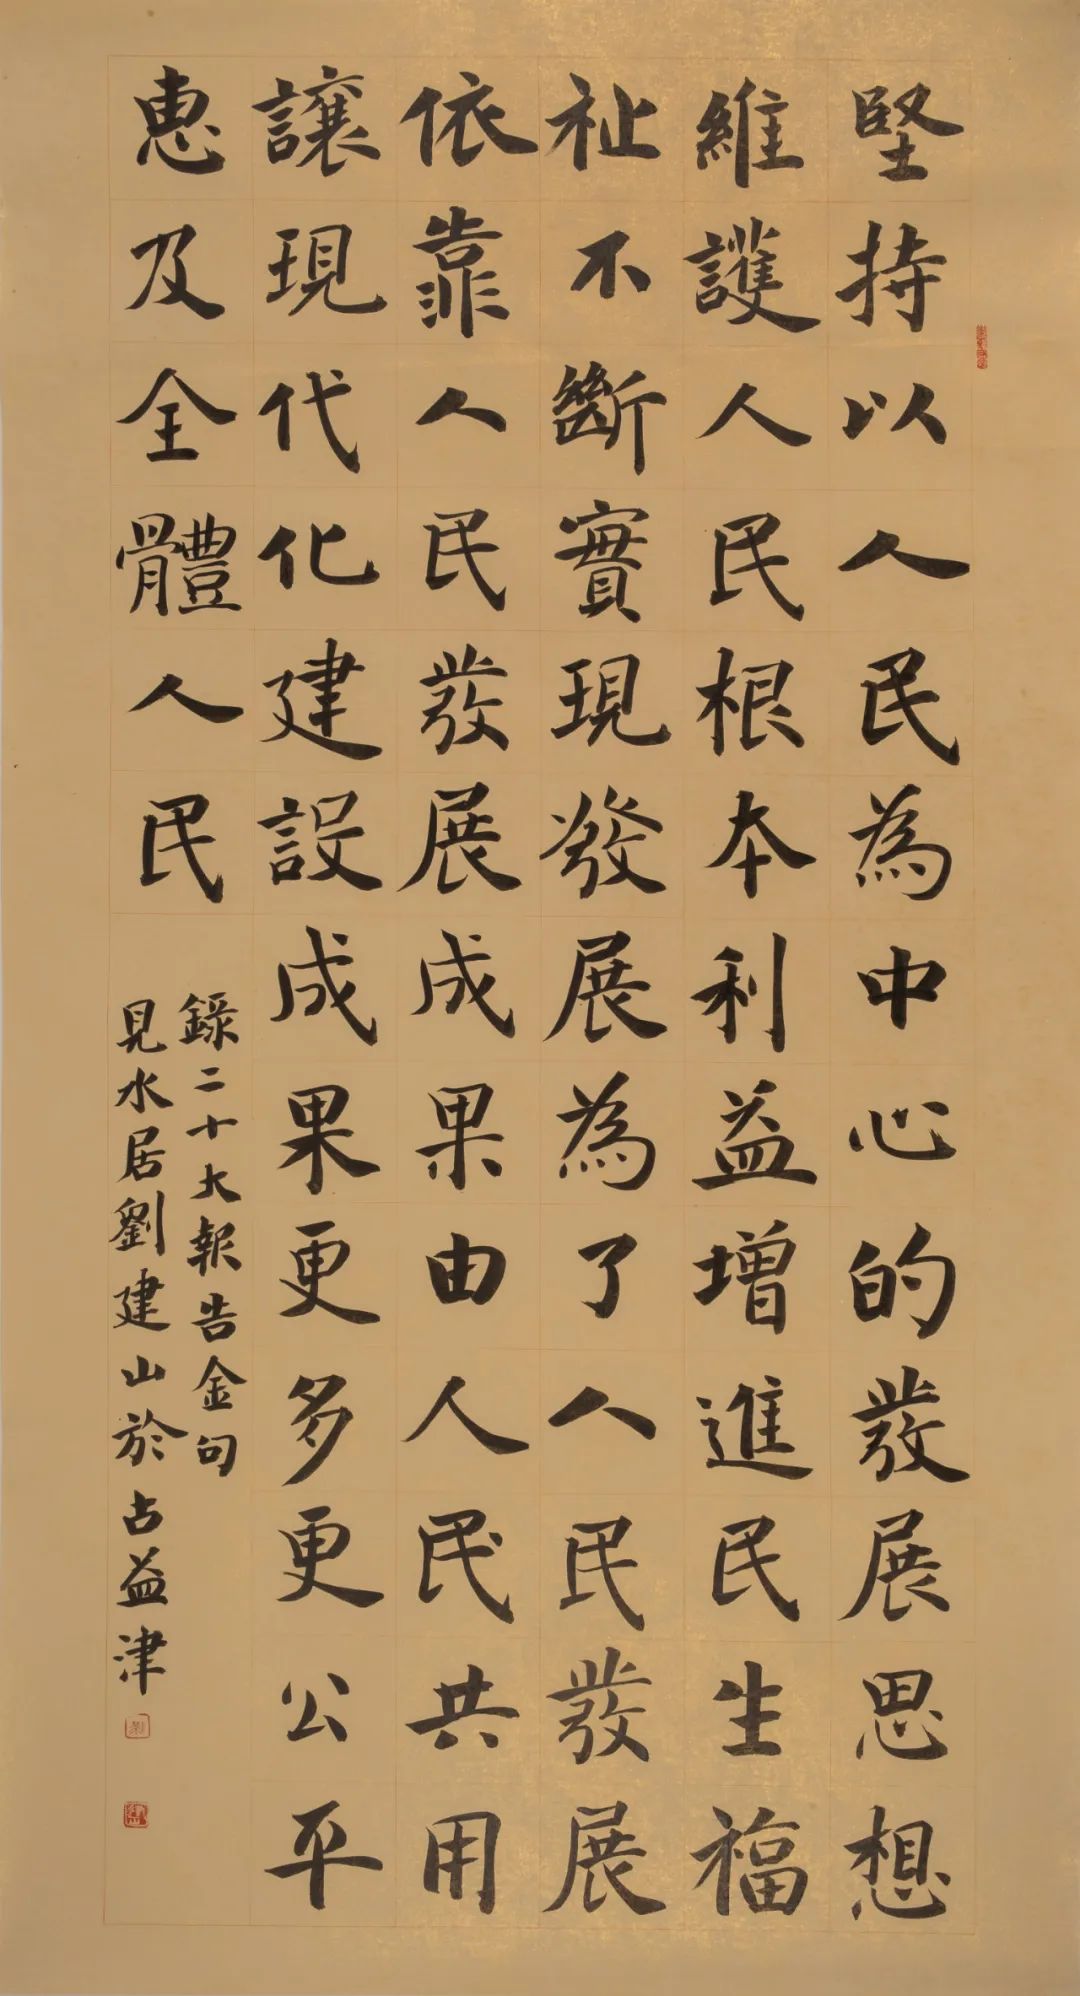 堅持以人民為中心的發展思想
維護人民根本利益增進民生福
祉不斷實現發展為了人民發展
依靠人民發展成果由人民共用
讓現代化建設成果更多更公平
惠及全體人民
錄二十大報告金句
見水居劉建山於古益津